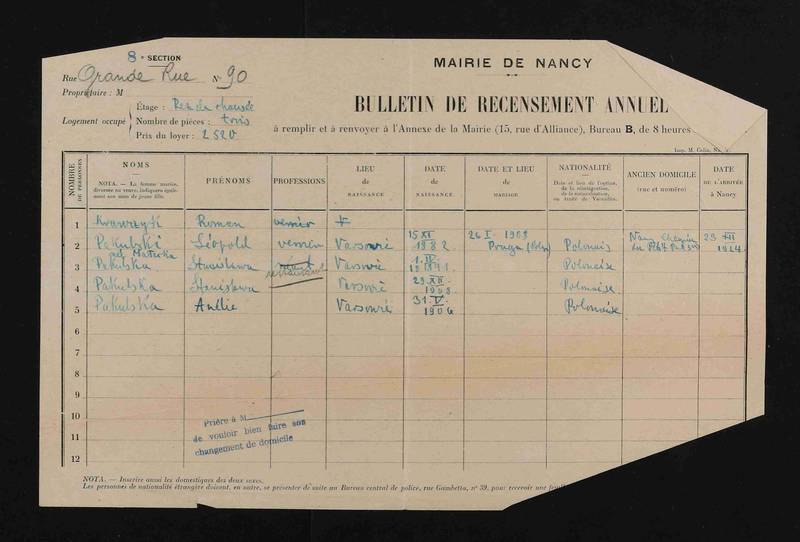 8e SECTION
Rue Grande Rue N° 90
Propriétaire : M
Logement occupé
Étage : Rez de chaussée
Nombre de pièces : trois
Prix du loyer : 2520
MAIRIE DE NANCY
BULLETIN DE RECENSEMENT ANNUEL
à remplir et à renvoyer à l'Annexe de la Mairie (15, rue d'Alliance), Bureau B, de 8 heures
Imp. M. Colin, Na
NOMBRE DE PERSONNES
NOMS
NOTA. — La femme mariée, divorcée ou veuve, indiquera également son nom de jeune fille.
PRÉNOMS
PROFESSIONS
LIEU de NAISSANCE
DATE de NAISSANCE
DATE ET LIEU de MARIAGE
NATIONALITÉ
Date et lieu de l'option, de la réintégration, de la naturalisation, ou traité de Versailles.
ANCIEN DOMICILE (rue et numéro)
DATE DE L'ARRIVÉE à Nancy
1 Krawczyk Roman vernier
2 Pakulski Léopold vernier Varsovie 15 XI 1882 26 I 1908 Polonais 23 XII 1924
née Matucka
3 Pakulska Stanislawa Varsovie 1. IV. Polonaise
4 Pakulska Stanislawa Varsovie 29 XII 1908 Polonaise
5 Pakulska Amélie Varsovie 31. V. 1906 Polonaise
6
7
8
9
10
11
12
Prière à M
de vouloir bien faire son
changement de domicile
NOTA. — Inscrire aussi les domestiques des deux sexes.
Les personnes de nationalité étrangère doivent, en outre, se présenter de suite au Bureau central de police, rue Gambetta, n° 39, pour recevoir une